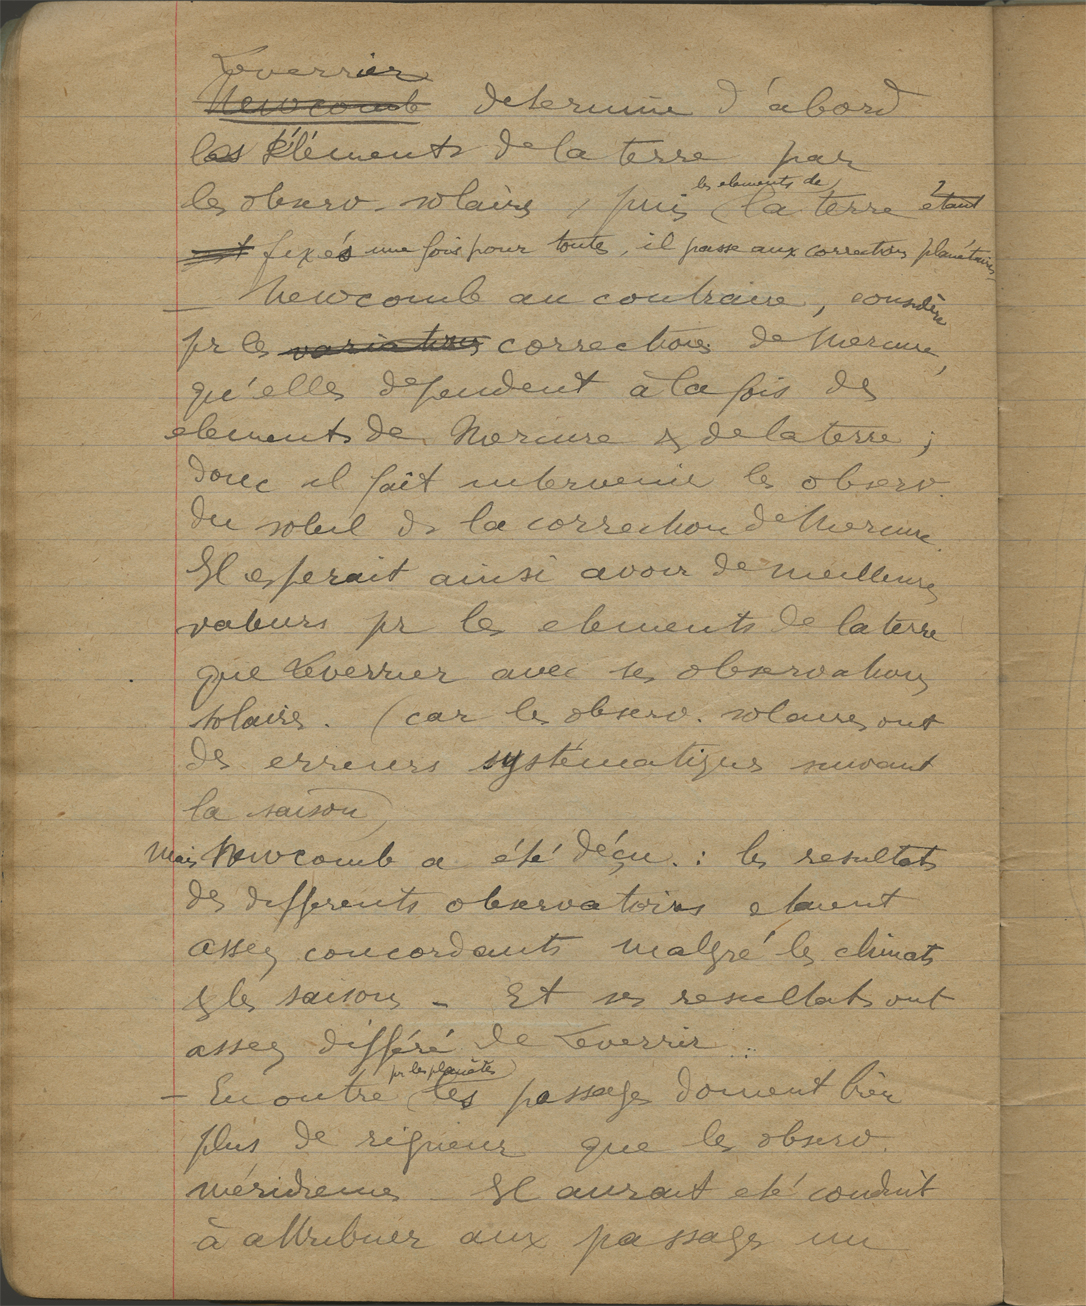 Leverrier
Newcomb determine d'abord
les éléments de la terre par
les observ. solaires, puis (les elements de) la terre etant
fixés une fois pour toutes, il passe aux corrections planétaires
— Newcomb au contraire, considère
pr les variations corrections de Mercure,
qu'elles dependent à la fois des
elements de Mercure & de la terre ;
donc il fait intervenir les observ.
du soleil ds la correction de Mercure.
Il esperait ainsi avoir de meilleures
valeurs pr les elements de la terre
que Leverrier avec ses observations
solaires. (car les observ. solaires ont
des erreurs systématiques suivant
la saison)
Mais Newcomb a été déçu. : les resultats
des differents observatoires etaient
assez concordants malgré les climats
& les saisons - Et ses resultats ont
assez différé de Leverrier ..
pr les planètes
— En outre les passages donnent bien
plus de rigueur que les observ.
méridiennes - Il aurait eté conduit
à attribuer aux passages un